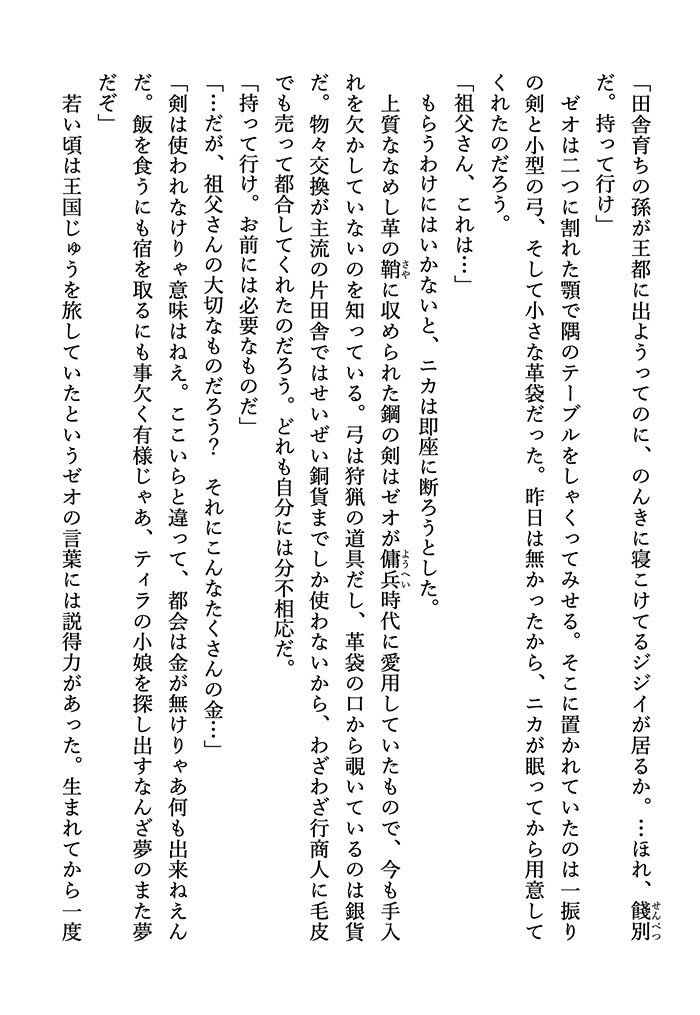 「田舎育ちの孫が王都に出ようってのに、のんきに寝こけてるジジイが居るか。…ほれ、餞別
だ。持って行け」
ゼオは二つに割れた顎で隅のテーブルをしゃくってみせる。そこに置かれていたのは一振り
の剣と小型の弓、そして小さな革袋だった。昨日は無かったから、ニカが眠ってから用意して
くれたのだろう。
「祖父さん、これは…」
もらうわけにはいかないと、ニカは即座に断ろうとした。
上質ななめし革の鞘に収められた鋼の剣はゼオが傭兵時代に愛用していたもので、今も手入
れを欠かしていないのを知っている。弓は狩猟の道具だし、革袋の口から覗いているのは銀貨
だ。物々交換が主流の片田舎ではせいぜい銅貨までしか使わないから、わざわざ行商人に毛皮
でも売って都合してくれたのだろう。どれも自分には分不相応だ。
「持って行け。お前には必要なものだ」
「…だが、祖父さんの大切なものだろう？　それにこんなたくさんの金…」
「剣は使われなけりゃ意味はねえ。ここいらと違って、都会は金が無けりゃあ何も出来ねえん
だ。飯を食うにも宿を取るにも事欠く有様じゃあ、ティラの小娘を探し出すなんざ夢のまた夢
だぞ」
若い頃は王国じゅうを旅していたというゼオの言葉には説得力があった。生まれてから一度